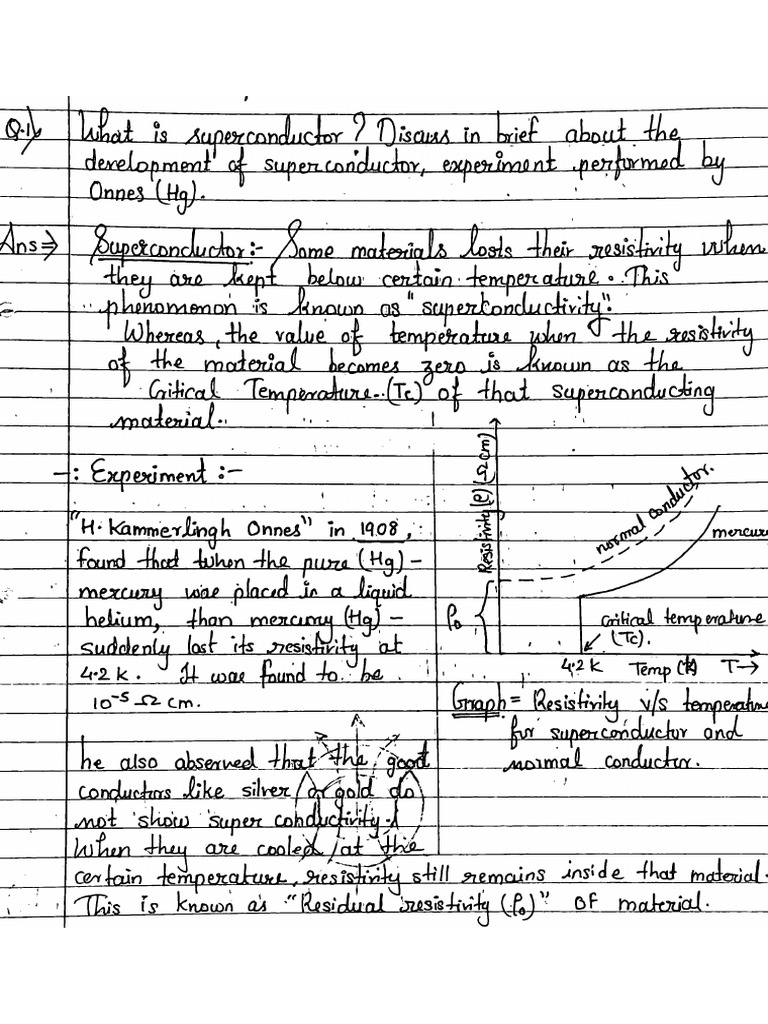 Q.1)
What is superconductor? Discuss in brief about the
development of superconductor, experiment performed by
Onnes (Hg).
Ans ⇒
Superconductor:- Some materials losts their resistivity when
they are kept below certain temperature. This
phenomonon is known as "superconductivity".
Whereas, the value of temperature when the resistivity
of the material becomes zero is known as the
Critical Temperature (Tc) of that superconducting
material.
-: Experiment :-
"H. Kammerlingh Onnes" in 1908,
found that when the pure (Hg) -
mercury was placed in a liquid
helium, than mercury (Hg) -
suddenly lost its resistivity at
4.2 k. It was found to be
10⁻⁵ Ω cm.
he also observed that the good
conductors like silver or gold do
not show super conductivity.
When they are cooled at the
certain temperature, resistivity still remains inside that material.
This is known as "Residual resistivity (ρ₀)" OF material.
Resistivity (ρ) (Ω cm)
normal conductor.
mercury
ρ₀
critical temperature
(Tc).
4.2 K Temp (K) T→
Graph = Resistivity v/s temperature
for superconductor and
normal conductor.